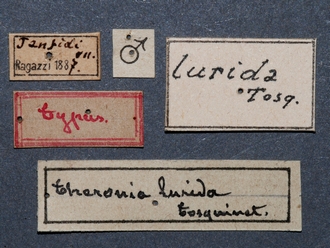 Janfidi
VII.
Ragazzi 1887.
♂
lurida
Tosq.
Typus.
Theronia lurida
Tosquinet.